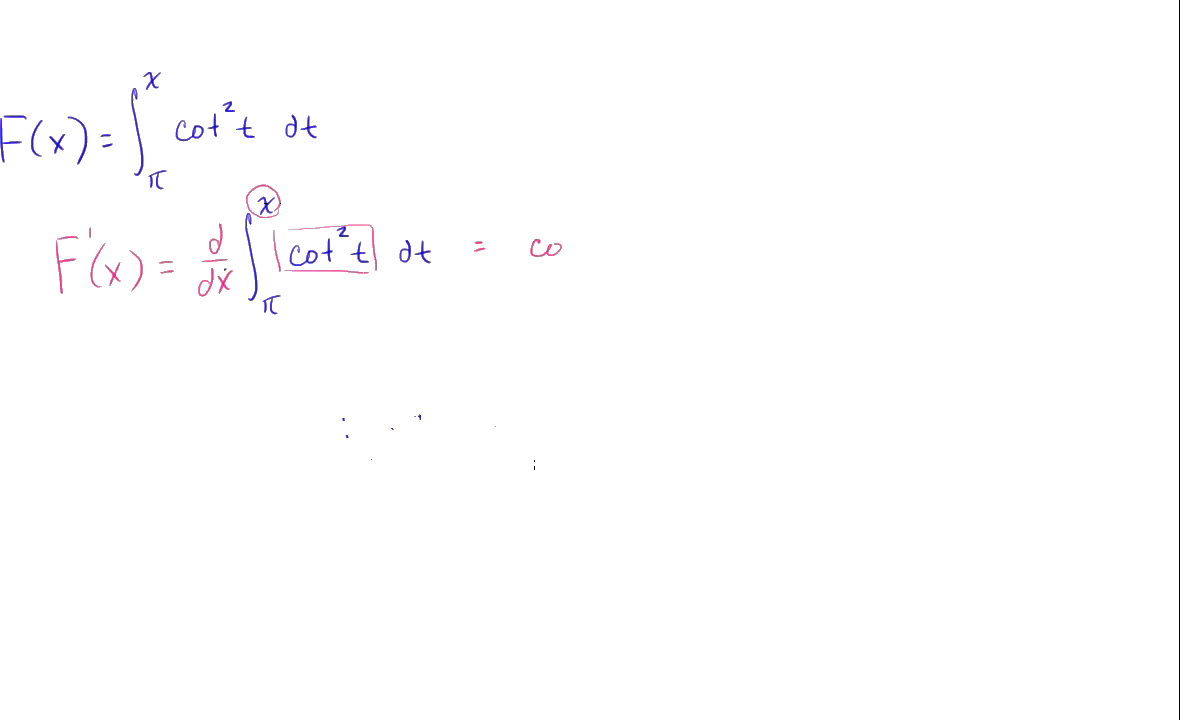 F(x) = ∫_π^x cot²t dt
F'(x) = d/dx ∫_π^x cot²t dt = co